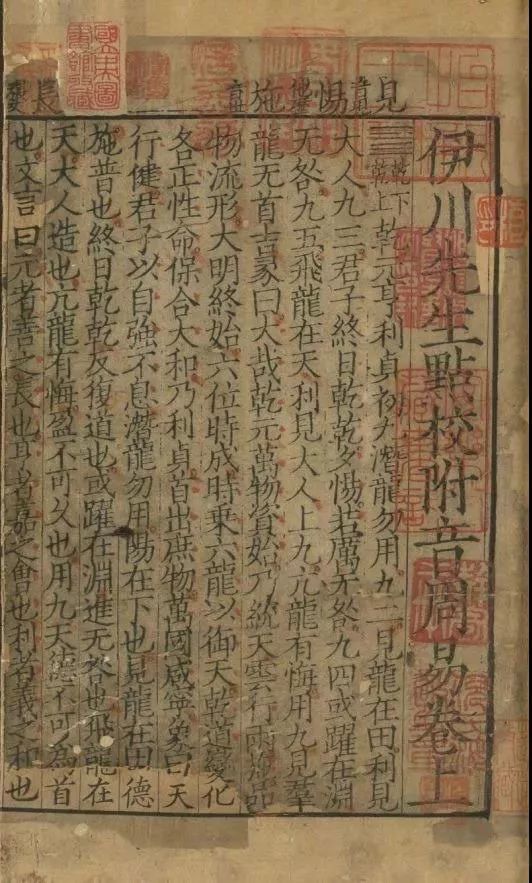 見 惕 施 長
伊川先生點校附音周易卷上
䷀ 乾下乾上 乾元亨利貞初九潛龍勿用九二見龍在田利見
大人九三君子終日乾乾夕惕若厲无咎九四或躍在淵
无咎九五飛龍在天利見大人上九亢龍有悔用九見羣
龍无首吉彖曰大哉乾元萬物資始乃統天雲行雨施品
物流形大明終始六位時成時乘六龍以御天乾道變化
各正性命保合大和乃利貞首出庶物萬國咸寧象曰天
行健君子以自強不息潛龍勿用陽在下也見龍在田德
施普也終日乾乾反復道也或躍在淵進无咎也飛龍在
天大人造也亢龍有悔盈不可久也用九天德不可為首
也文言曰元者善之長也亨者嘉之會也利者義之和也